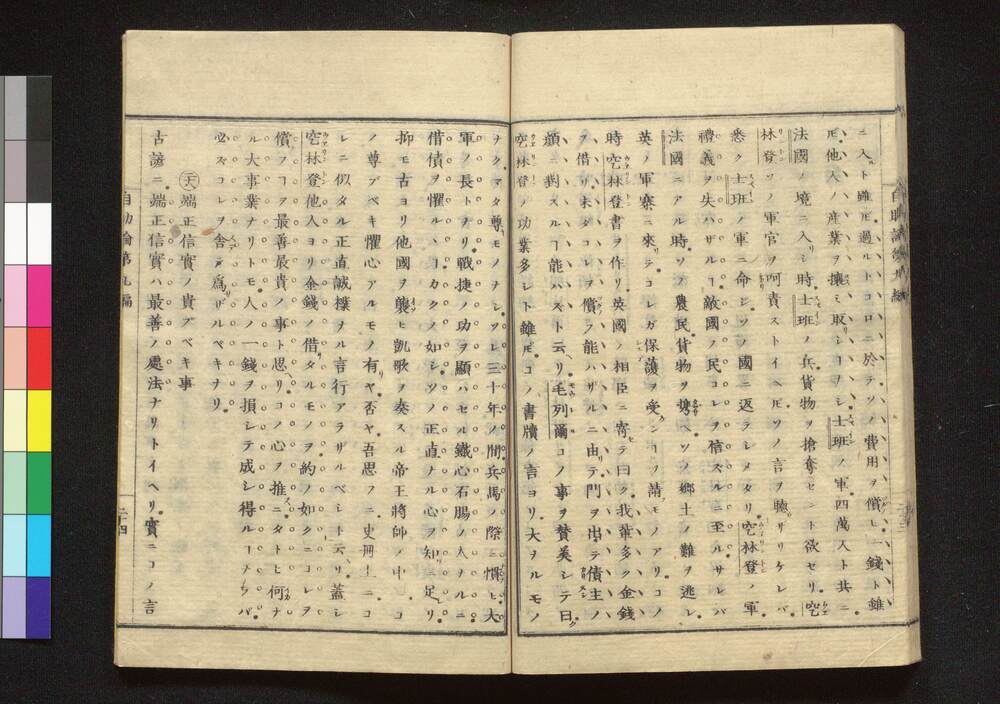 ニ入ト雖𪜈過ルトコロニ於テソノ費用ヲ償ヒ一錢ト雖
𪜈他人ノ産業ヲ攘ミ取リシヿヲシ士班ノ軍四萬人ト共ニ
法國ノ境ニ入リシ時士班ノ兵貨物ヲ搶奪セント欲セリ空
林登ソノ軍官ヲ呵責ストイヘ𪜈ソノ言ヲ聽ザリケレバ
悉ク士班ノ軍ニ命シソノ國ニ返ラシメタリ空林登ノ軍
禮義ヲ失ハザルヿ敵國ノ民コレヲ信スルニ至ルサレバ
法國ニアル時ソノ農民貨物ヲ携ヘソノ郷土ノ難ヲ逃レ
英ノ軍寨ニ來リテコレガ保護ヲ受ンヿヲ請モノアリコノ
時空林登書ヲ作リ英國ノ相臣ニ寄テ曰ク我輩多ク金錢
ヲ借リ未タコレヲ償フ能ハザルニ由テ門ヲ出テ債主ノ
顔ニ對スルヿ能ハズト云リ毛列爾コノ事ヲ賛美シテ曰ク
空林登ノ功業多シト雖𪜈コノ書牘ノ言ヨリ大ヲルモノ
ナクマタ尊キモノナシソレ三十年ノ間兵馬ノ際ニ慣ヒ大
軍ノ長トナリ戰捷ノ功ヲ顯ハセル鐵心石腸ノ人ナルニ
借債ヲ懼ルヽヿカクノ如シソノ正直ナル心ヲ知ニ足リ
抑モ古ヨリ他國ヲ襲ヒ凱歌ノ奏スル帝王將帥ノ中コ
ノ尊ブベキ懼心アルモノ有リヤ否ヤ吾思フニ史冊上ニコ
レニ似タル正直誠樸ヲル言行アラザルベシト云リ蓋シ
空林登他人ヨリ金錢ノ借リタルモノヲ約ノ如クニコレヲ
償フヿヲ最善最貴ノ事ト思ヘリコノ心ヲ推スニタトヒ何ナ
ル大事業ナリトモ人ノ一錢ヲ損シテ成シ得ルヿナラバ
必ズコレヲ舎テ爲ザルベキナリ
端正信實ノ貴ブベキ事
古諺ニ端正信實ハ最善ノ處法ナリトイヘリ實ニコノ言
自助論第九編
二十四